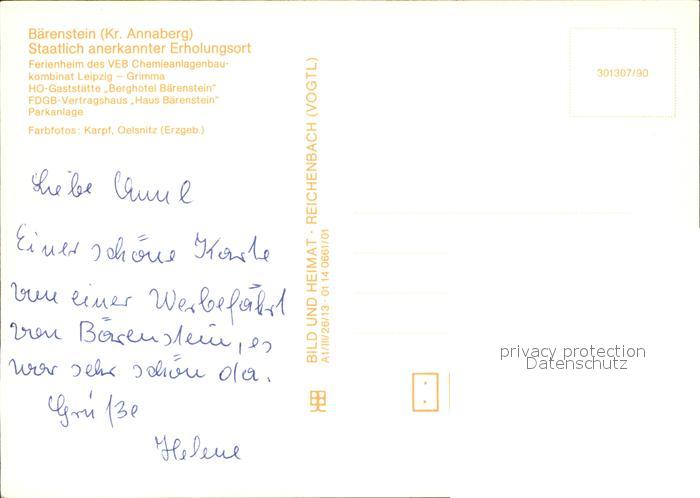 Bärenstein (Kr. Annaberg)
Staatlich anerkannter Erholungsort
Ferienheim des VEB Chemieanlagenbau-
kombinat Leipzig – Grimma
HO-Gaststätte „Berghotel Bärenstein"
FDGB-Vertragshaus „Haus Bärenstein"
Parkanlage
Farbfotos: Karpf, Oelsnitz (Erzgeb.)
Liebe
Einer schöne Karte
von einer Werbefahrt
von Bärenstein, es
war sehr schön da.
Grüße
Helene
BILD UND HEIMAT · REICHENBACH (VOGTL)
A1/III/26/13 · 01 14 0661/01
301307/90
privacy protection
Datenschutz